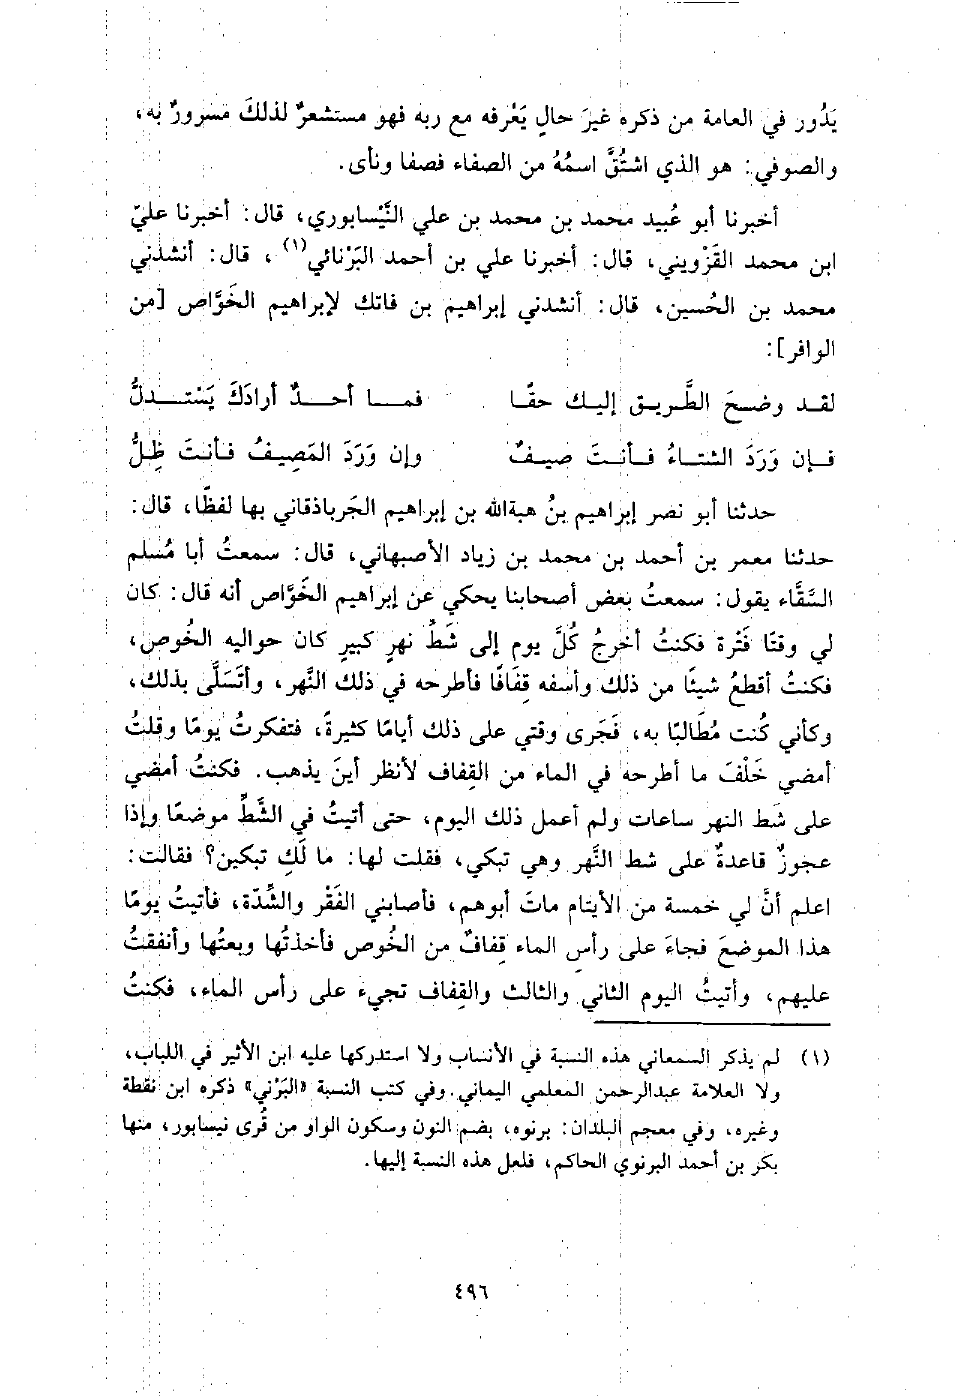 يَدُور في العامة من ذكره غيرَ حالٍ يَعْرفه مع ربه فهو مستشعرٌ لذلكَ مسرورٌ به،
والصوفي: هو الذي اشتُقَّ اسمُهُ من الصفاء فصفا ونأى.
أخبرنا أبو عُبيد محمد بن محمد بن علي النَّيْسابوري، قال: أخبرنا عليّ
ابن محمد القَزْويني، قال: أخبرنا علي بن أحمد البَرْنائي(١)، قال: أنشدني
محمد بن الحُسين، قال: أنشدني إبراهيم بن فاتك لإبراهيم الخَوَّاص [من
الوافر]:
لقد وضحَ الطَّريق إليك حقًا فما أحدٌ أرادَكَ يَسْتدلُّ
فإن وَرَدَ الشتاءُ فأنتَ صيفٌ وإن وَرَدَ المَصِيفُ فأنتَ ظِلُّ
حدثنا أبو نصر إبراهيم بنُ هبةالله بن إبراهيم الجَرباذقاني بها لفظًا، قال:
حدثنا معمر بن أحمد بن محمد بن زياد الأصبهاني، قال: سمعتُ أبا مُسلم
السَّقَّاء يقول: سمعتُ بعض أصحابنا يحكي عن إبراهيم الخَوَّاص أنه قال: كان
لي وقتًا فَتْرة فكنتُ أخرجُ كُلَّ يوم إلى شَطُ نهرٍ كبيرٍ كان حواليه الخُوص،
فكنتُ أقطعُ شيئًا من ذلك وأسفه قِفَافًا فأطرحه في ذلك النَّهر، وأتَسَلَّى بذلك،
وكأني كُنت مُطَالبًا به، فَجَرى وقتي على ذلك أيامًا كثيرةً، فتفكرتُ يومًا وقلتُ
أمضي خَلْفَ ما أطرحه في الماء من القِفاف لأنظر أينَ يذهب. فكنتُ أمضي
على شَط النهر ساعات ولم أعمل ذلك اليوم، حتى أتيتُ في الشَّطِّ موضعًا وإذا
عجوزٌ قاعدةٌ على شط النَّهر وهي تبكي، فقلت لها: ما لَكِ تبكين؟ فقالت:
اعلم أنَّ لي خمسة من الأيتام ماتَ أبوهم، فأصابني الفَقْر والشِّدّة، فأتيتُ يومًا
هذا الموضعَ فجاءَ على رأسِ الماء قِفافٌ من الخُوص فأخذتُها وبعتُها وأنفقتُ
عليهم، وأتيتُ اليوم الثاني والثالث والقِفاف تجيء على رأس الماء، فكنتُ
(١) لم يذكر السمعاني هذه النسبة في الأنساب ولا استدركها عليه ابن الأثير في اللباب،
ولا العلامة عبدالرحمن المعلمي اليماني. وفي كتب النسبة «البَرْني» ذكره ابن نقطة
وغيره، وفي معجم البلدان: برنوه، بضم النون وسكون الواو من قُرى نيسابور، منها
بكر بن أحمد البرنوي الحاكم، فلعل هذه النسبة إليها.
٤٩٦